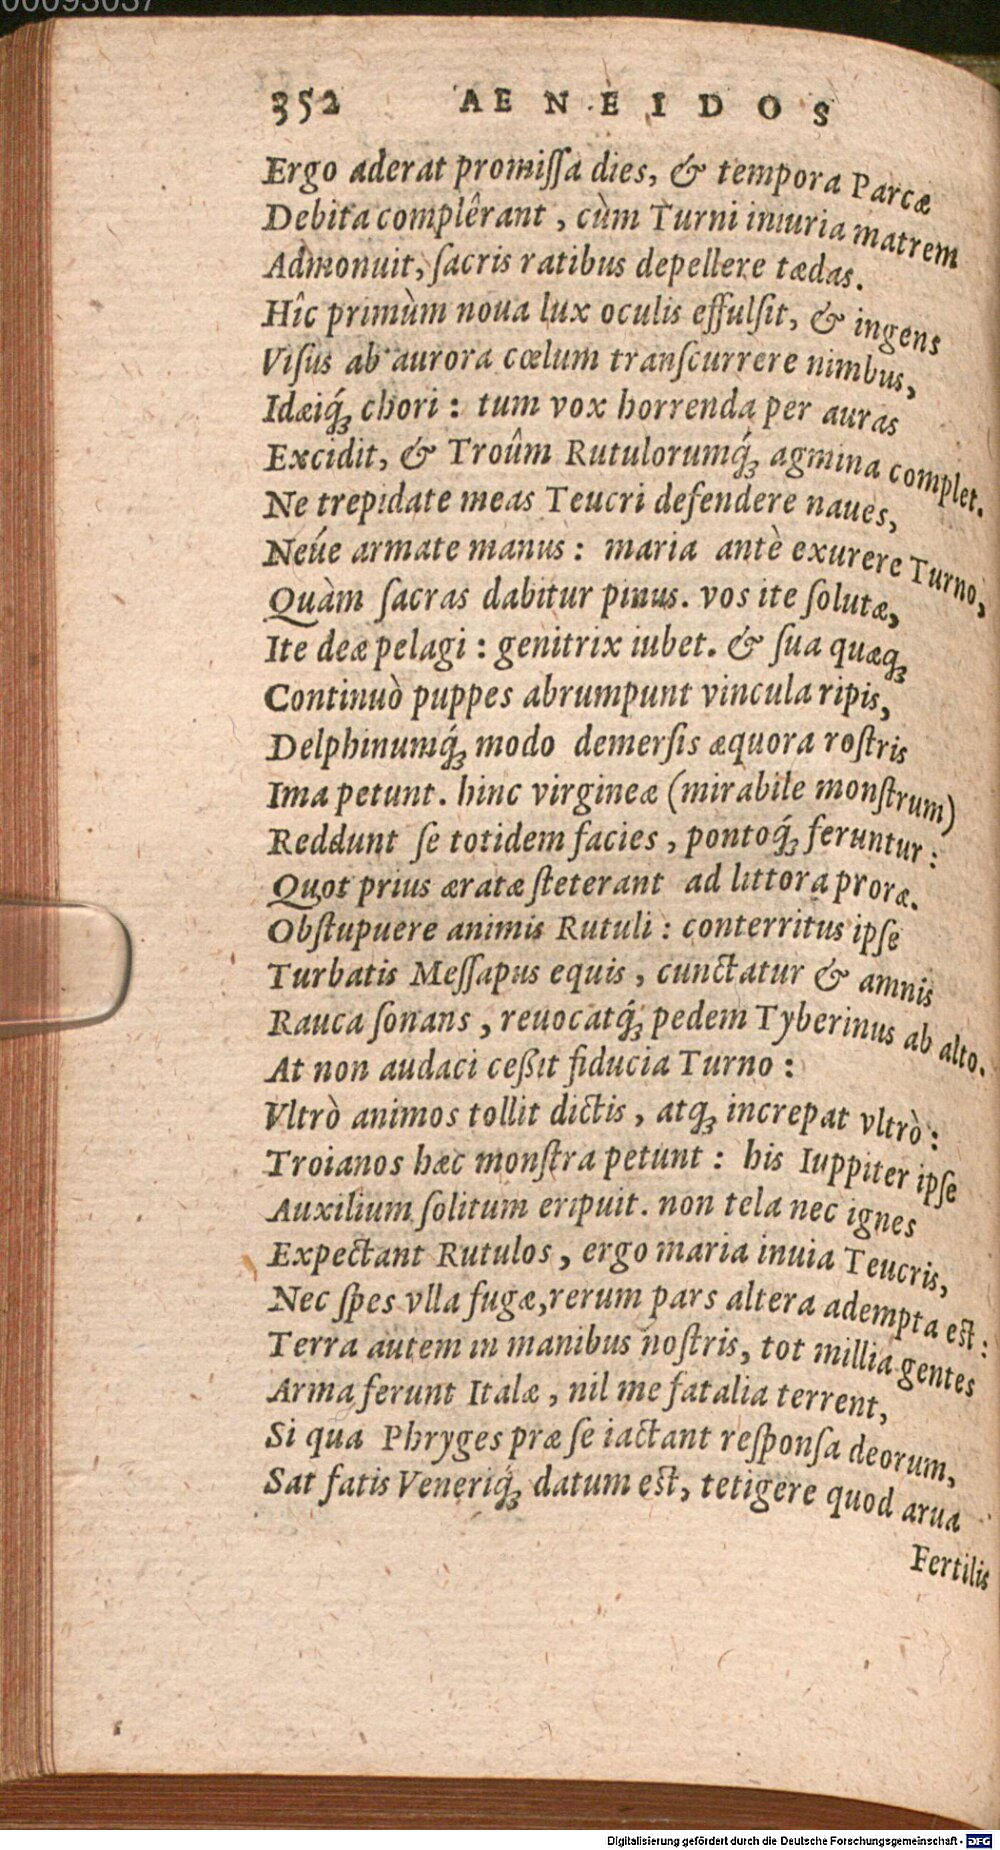 00093037
352 AENEIDOS
Ergo aderat promiſſa dies, & tempora Parcæ
Debita complêrant, cùm Turni iniuria matrem
Admonuit, ſacris ratibus depellere tædas.
Hîc primùm noua lux oculis effulſit, & ingens
Viſus ab aurora cœlum tranſcurrere nimbus,
Idæiq́ꝫ chori: tum vox horrenda per auras
Excidit, & Troûm Rutulorumq́ꝫ agmina complet.
Ne trepidate meas Teucri defendere naues,
Neúe armate manus: maria antè exurere Turno,
Quàm ſacras dabitur pinus. vos ite ſolutæ,
Ite deæ pelagi: genitrix iubet. & ſua quæqꝫ
Continuò puppes abrumpunt vincula ripis,
Delphinumq́ꝫ modo demerſis æquora roſtris
Ima petunt. hinc virgineæ (mirabile monſtrum)
Reddunt ſe totidem facies, pontoq́ꝫ feruntur:
Quot prius æratæ ſteterant ad littora proræ.
Obſtupuere animis Rutuli: conterritus ipſe
Turbatis Meſſapus equis, cunctatur & amnis
Rauca ſonans, reuocatq́ꝫ pedem Tyberinus ab alto.
At non audaci ceßit fiducia Turno:
Vltrò animos tollit dictis, atqꝫ increpat vltrò:
Troianos hæc monſtra petunt: his Iuppiter ipſe
Auxilium ſolitum eripuit. non tela nec ignes
Expectant Rutulos, ergo maria inuia Teucris,
Nec ſpes vlla fugæ, rerum pars altera adempta eſt:
Terra autem in manibus noſtris, tot millia gentes
Arma ferunt Italæ, nil me fatalia terrent,
Si qua Phryges præ ſe iactant reſponſa deorum,
Sat fatis Veneriq́ꝫ datum eſt, tetigere quod arua
Fertilis
Digitalisierung gefördert durch die Deutsche Forschungsgemeinschaft - DFG